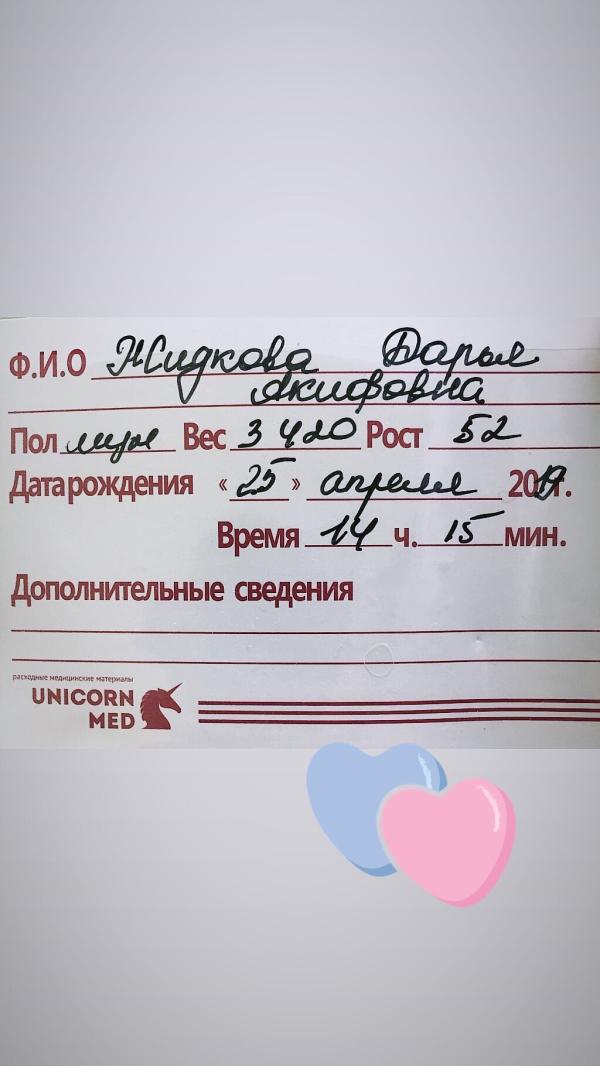 Ф.И.О Жидкова Дарья
Акифовна
Пол муж Вес 3420 Рост 52
Дата рождения «25» апреля 2019г.
Время 14 ч. 15 мин.
Дополнительные сведения
расходные медицинские материалы
UNICORN
MED